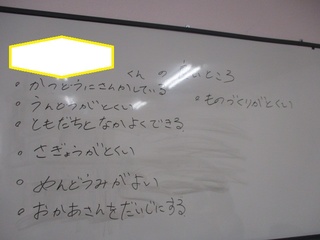 くん の いいところ
• かつどうにさんかしている
• うんどうがとくい
• ともだちとなかよくできる
• さぎょうがとくい
• めんどうみがよい
• おかあさんをだいじにする
• ものづくりがとくい